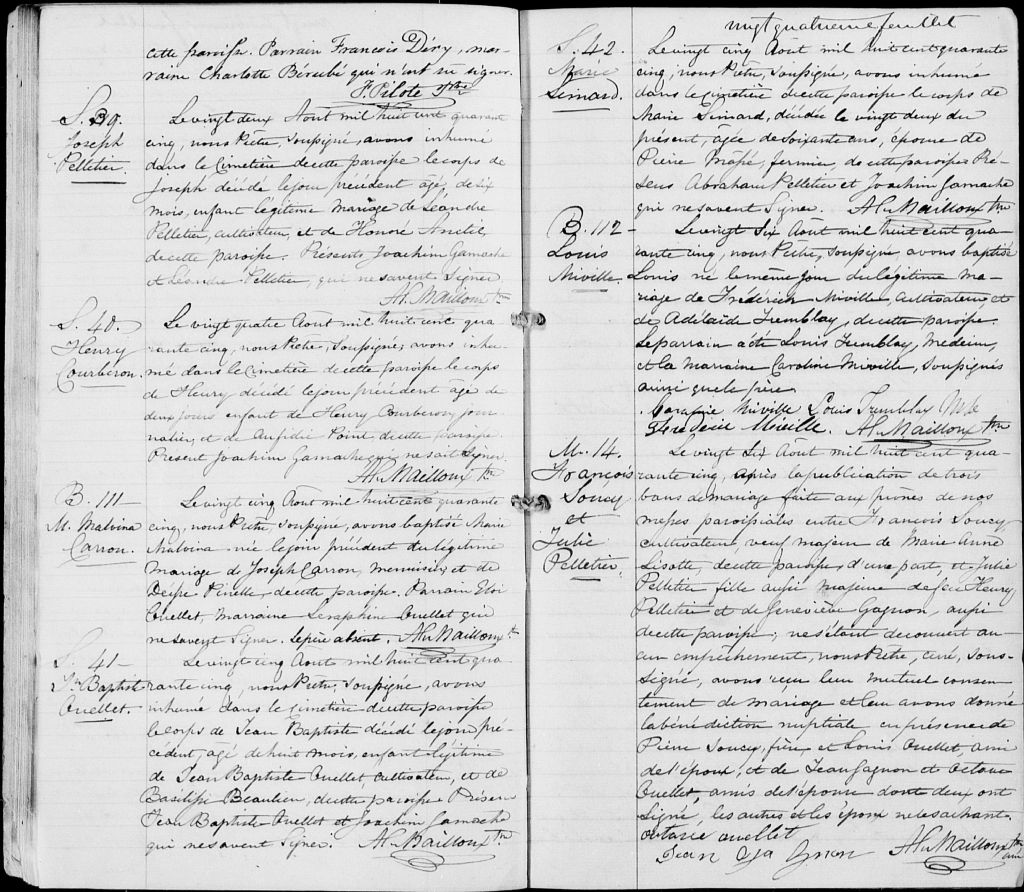 cette paroisse. Parrain François Déry, mar-
raine Charlotte Bérubé qui n'ont su signer.
F. Pilote Ptre
S. 39.
Joseph
Pelletier.
Le vingt deux Aout mil huit cent quarante
cinq, nous Prêtre, soussigné, avons inhumé
dans le Cimetière de cette paroisse le corps de
Joseph décédé le jour précédent âgé, de six
mois, enfant légitime mariage de Leandre
Pelletier, cultivateur, et de Honoré Anctil,
de cette paroisse. Présents Joachim Gamache
et Léandre Pelletier, qui ne savent signer
Al. Mailloux Ptre
S. 40.
Henry
Courberon.
Le vingt quatre Aout mil huit cent qua
rante cinq, nous Prêtre, soussigné, avons inhu-
mé dans le Cimetière de cette paroisse le corps
de Henry décédé le jour précédent âgé de
deux jours enfant de Henry Courberon jour
nalier, et de Point, de cette paroisse.
Présent Joachim Gamache qui ne sait signer.
Al. Mailloux Ptre
B. 111
M. Malvina
Carron.
Le vingt cinq Aout mil huit cent quarante
cinq, nous Prêtre soussigné, avons baptisé Marie
Malvina née le jour précédent du légitime
mariage de Joseph Carron, menuisier, et de
Pinelle, de cette paroisse. Parrain Eloi
Ouellet, Marraine Seraphine Ouellet qui
ne savent signer. le père absent. Al. Mailloux Ptre
S. 41
Jn Baptist
Ouellet.
Le vingt cinq Aout mil huit cent qua-
rante cinq, nous Prêtre, soussigné, avons
inhumé dans le cimetière de cette paroisse
le corps de Jean Baptiste décédé le jour pré-
cédent, agé de huit mois, enfant légitime
de Jean Baptiste Ouellet, cultivateur, et de
Basilisse Beaulieu, de cette paroisse Présens
Jean Baptiste Ouellet et Joachim Gamache
qui ne savent signer. Al. Mailloux Ptre
vingt quatrieme feuillet
S. 42.
Marie
Simard.
Le vingt cinq Aout mil huit cent quarante
cinq, nous Prêtre, soussigné, avons inhumé
dans le cimetière de cette paroisse le corps de
Marie Simard, décédée le vingt deux du
présent, âgée de soixante ans, épouse de
Pierre Massé, fermier, de cette paroisse Pré-
sens Abraham Pelletier et Joachim Gamache
qui ne savent signer. Al. Mailloux Ptre
B. 112
Louis
Miville.
Le vingt six Aout mil huit cent qua-
rante cinq, nous Prêtre, soussigné avons baptisé
Louis né le même jour du légitime ma-
riage de Frédérick Miville, cultivateur, et
de Adélaïde Tremblay, de cette paroisse.
Le parrain a été Louis Tremblay, Medecin,
et la Marraine Caroline Miville, soussignés
ainsi que le père
Caroline Miville Louis Tremblay
Frederic Miville. Al. Mailloux Ptre
M. 14.
François
Soucy
et
Julie
Pelletier.
Le vingt six Aout mil huit cent qua-
rante cinq, après la publication de trois
bans de mariage faite aux prones de nos
messes paroissiales entre François Soucy
cultivateur, veuf majeur de Marie Anne
Lizotte, de cette paroisse, d'une part, et Julie
Pelletier fille aussi majeure de feu Henry
Pelletier et de Geneviève Gagnon, aussi
de cette paroisse; ne s'étant decouvert au-
cun empêchement, nous Prêtre, curé, sous-
signé, avons reçu leur mutuel consen-
tement de mariage et leur avons donné
la bénédiction nuptiale en présence de
Pierre Soucy, frère et Louis Ouellet, ami
de l'époux; et de Jean Gagnon et Octave
Ouellet, amis de l'épouse dont deux ont
signé, les autres et les époux ne le sachant.
octave ouellet
Jean Ga Gnon Al. Mailloux Ptre